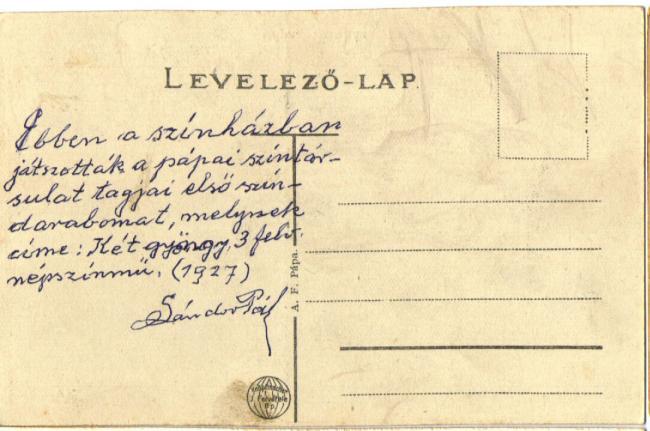 LEVELEZŐ-LAP.
Ebben a színházban
játszották a pápai szintár-
sulat tagjai első szín-
darabomat, melynek
címe: Két gyöngy, 3 felv.
népszínmű. (1927)
Sándor Pál
A. F. Pápa.